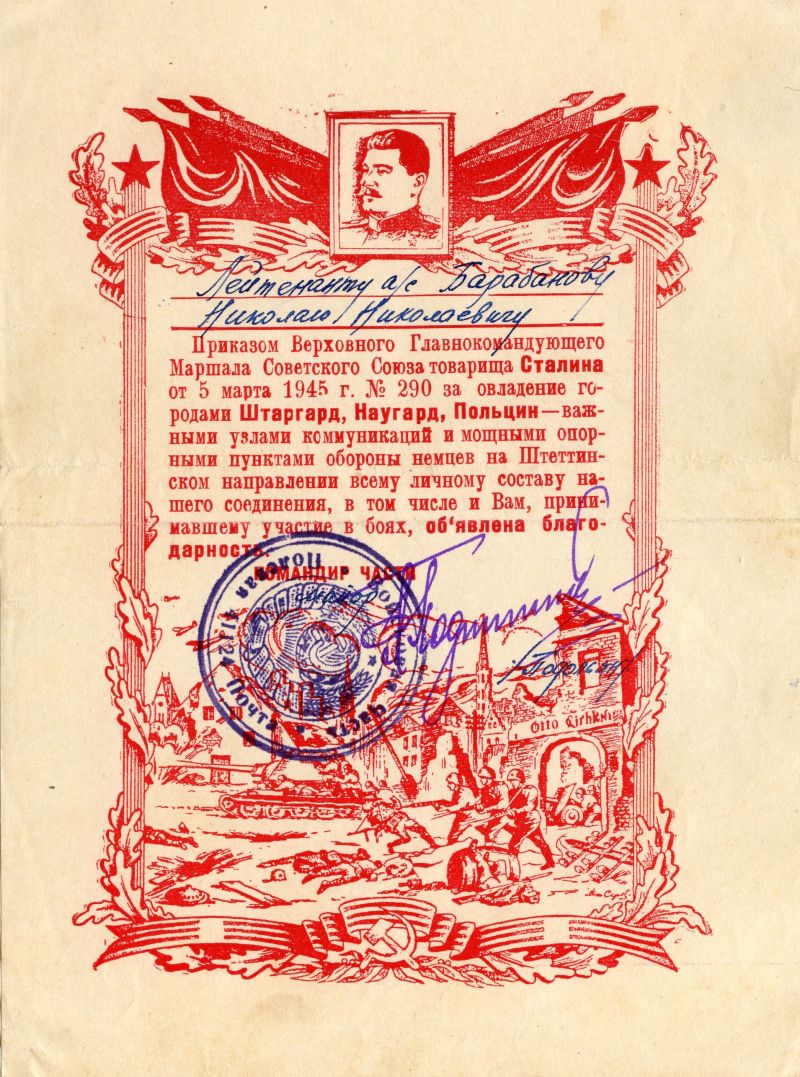 Лейтенанту а/с Барабанову
Николаю Николаевичу
Приказом Верховного Главнокомандующего
Маршала Советского Союза товарища Сталина
от 5 марта 1945 г. № 290 за овладение го-
родами Штаргард, Наугард, Польцин—важ-
ными узлами коммуникаций и мощными опор-
ными пунктами обороны немцев на Штеттин-
ском направлении всему личному составу на-
шего соединения, в том числе и Вам, прини-
мавшему участие в боях, об‘явлена благо-
дарность.
КОМАНДИР ЧАСТИ
майор
Полевая Почта
часть
Otto